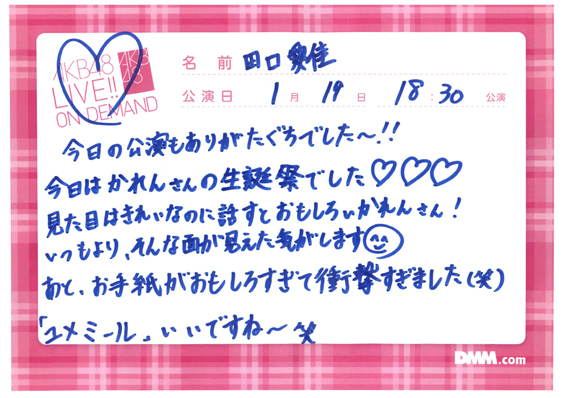 AKB48
LIVE!!
ON DEMAND
AKB
48
名前 田口愛佳
公演日 1月19日 18:30 公演
今日の公演もありがたぐちでした〜!!
今日はかれんさんの生誕祭でした♡♡♡
見た目はきれいなのに話すとおもしろいかれんさん!
いつもより、そんな面が見えた気がします
あと、お手紙がおもしろすぎて衝撃すぎました(笑)
「ユメミール」いいですね〜笑
DMM.com